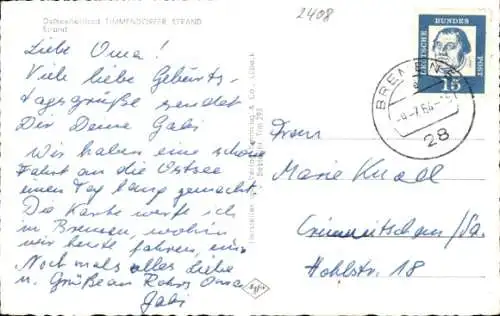 2408
Ostseeheilbad TIMMENDORFER STRAND
Strand
Liebe Oma!
Viele liebe Geburts-
tagsgrüße sendet
Dir Deine Gabi
Wir haben eine schöne
Fahrt an die Ostsee
einen Tag lang gemacht.
Die Karte werfe ich
in Bremen, wohin
wir heute fahren, ein.
Nochmals alles Liebe
u. Grüße an Oma
Gabi
DEUTSCHE BUNDESPOST
15
BREMEN
-7.64
28
Frau
Marie Knoll
Crimmitschau/Sa.
Hohlstr. 18
Agfa